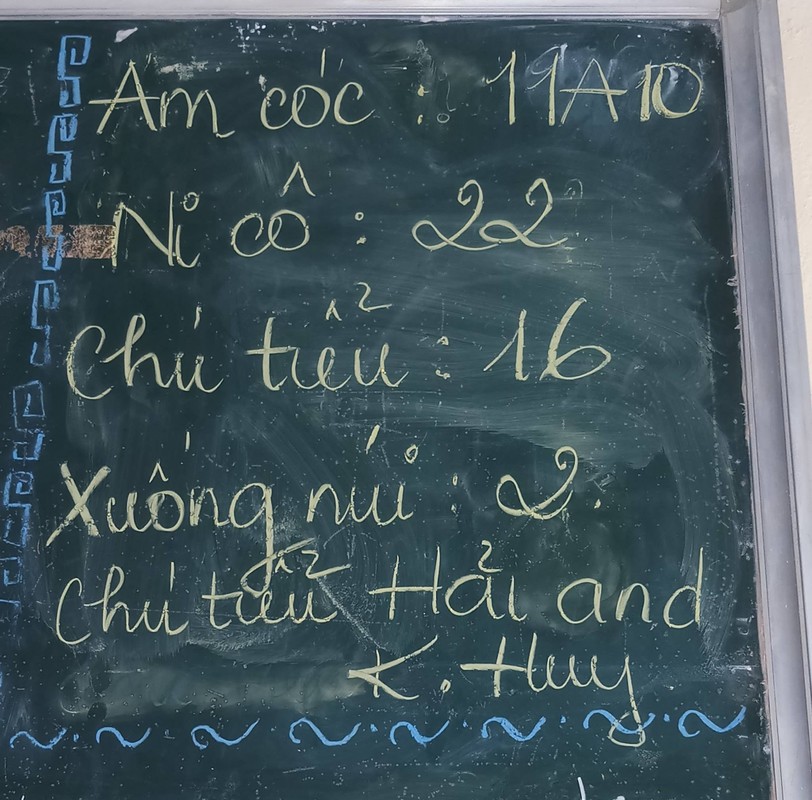 Am cốc : 11A10
Ni cô : 22
Chú tiểu : 16
Xuống núi : 2.
Chú tiểu Hải and
K. Huy